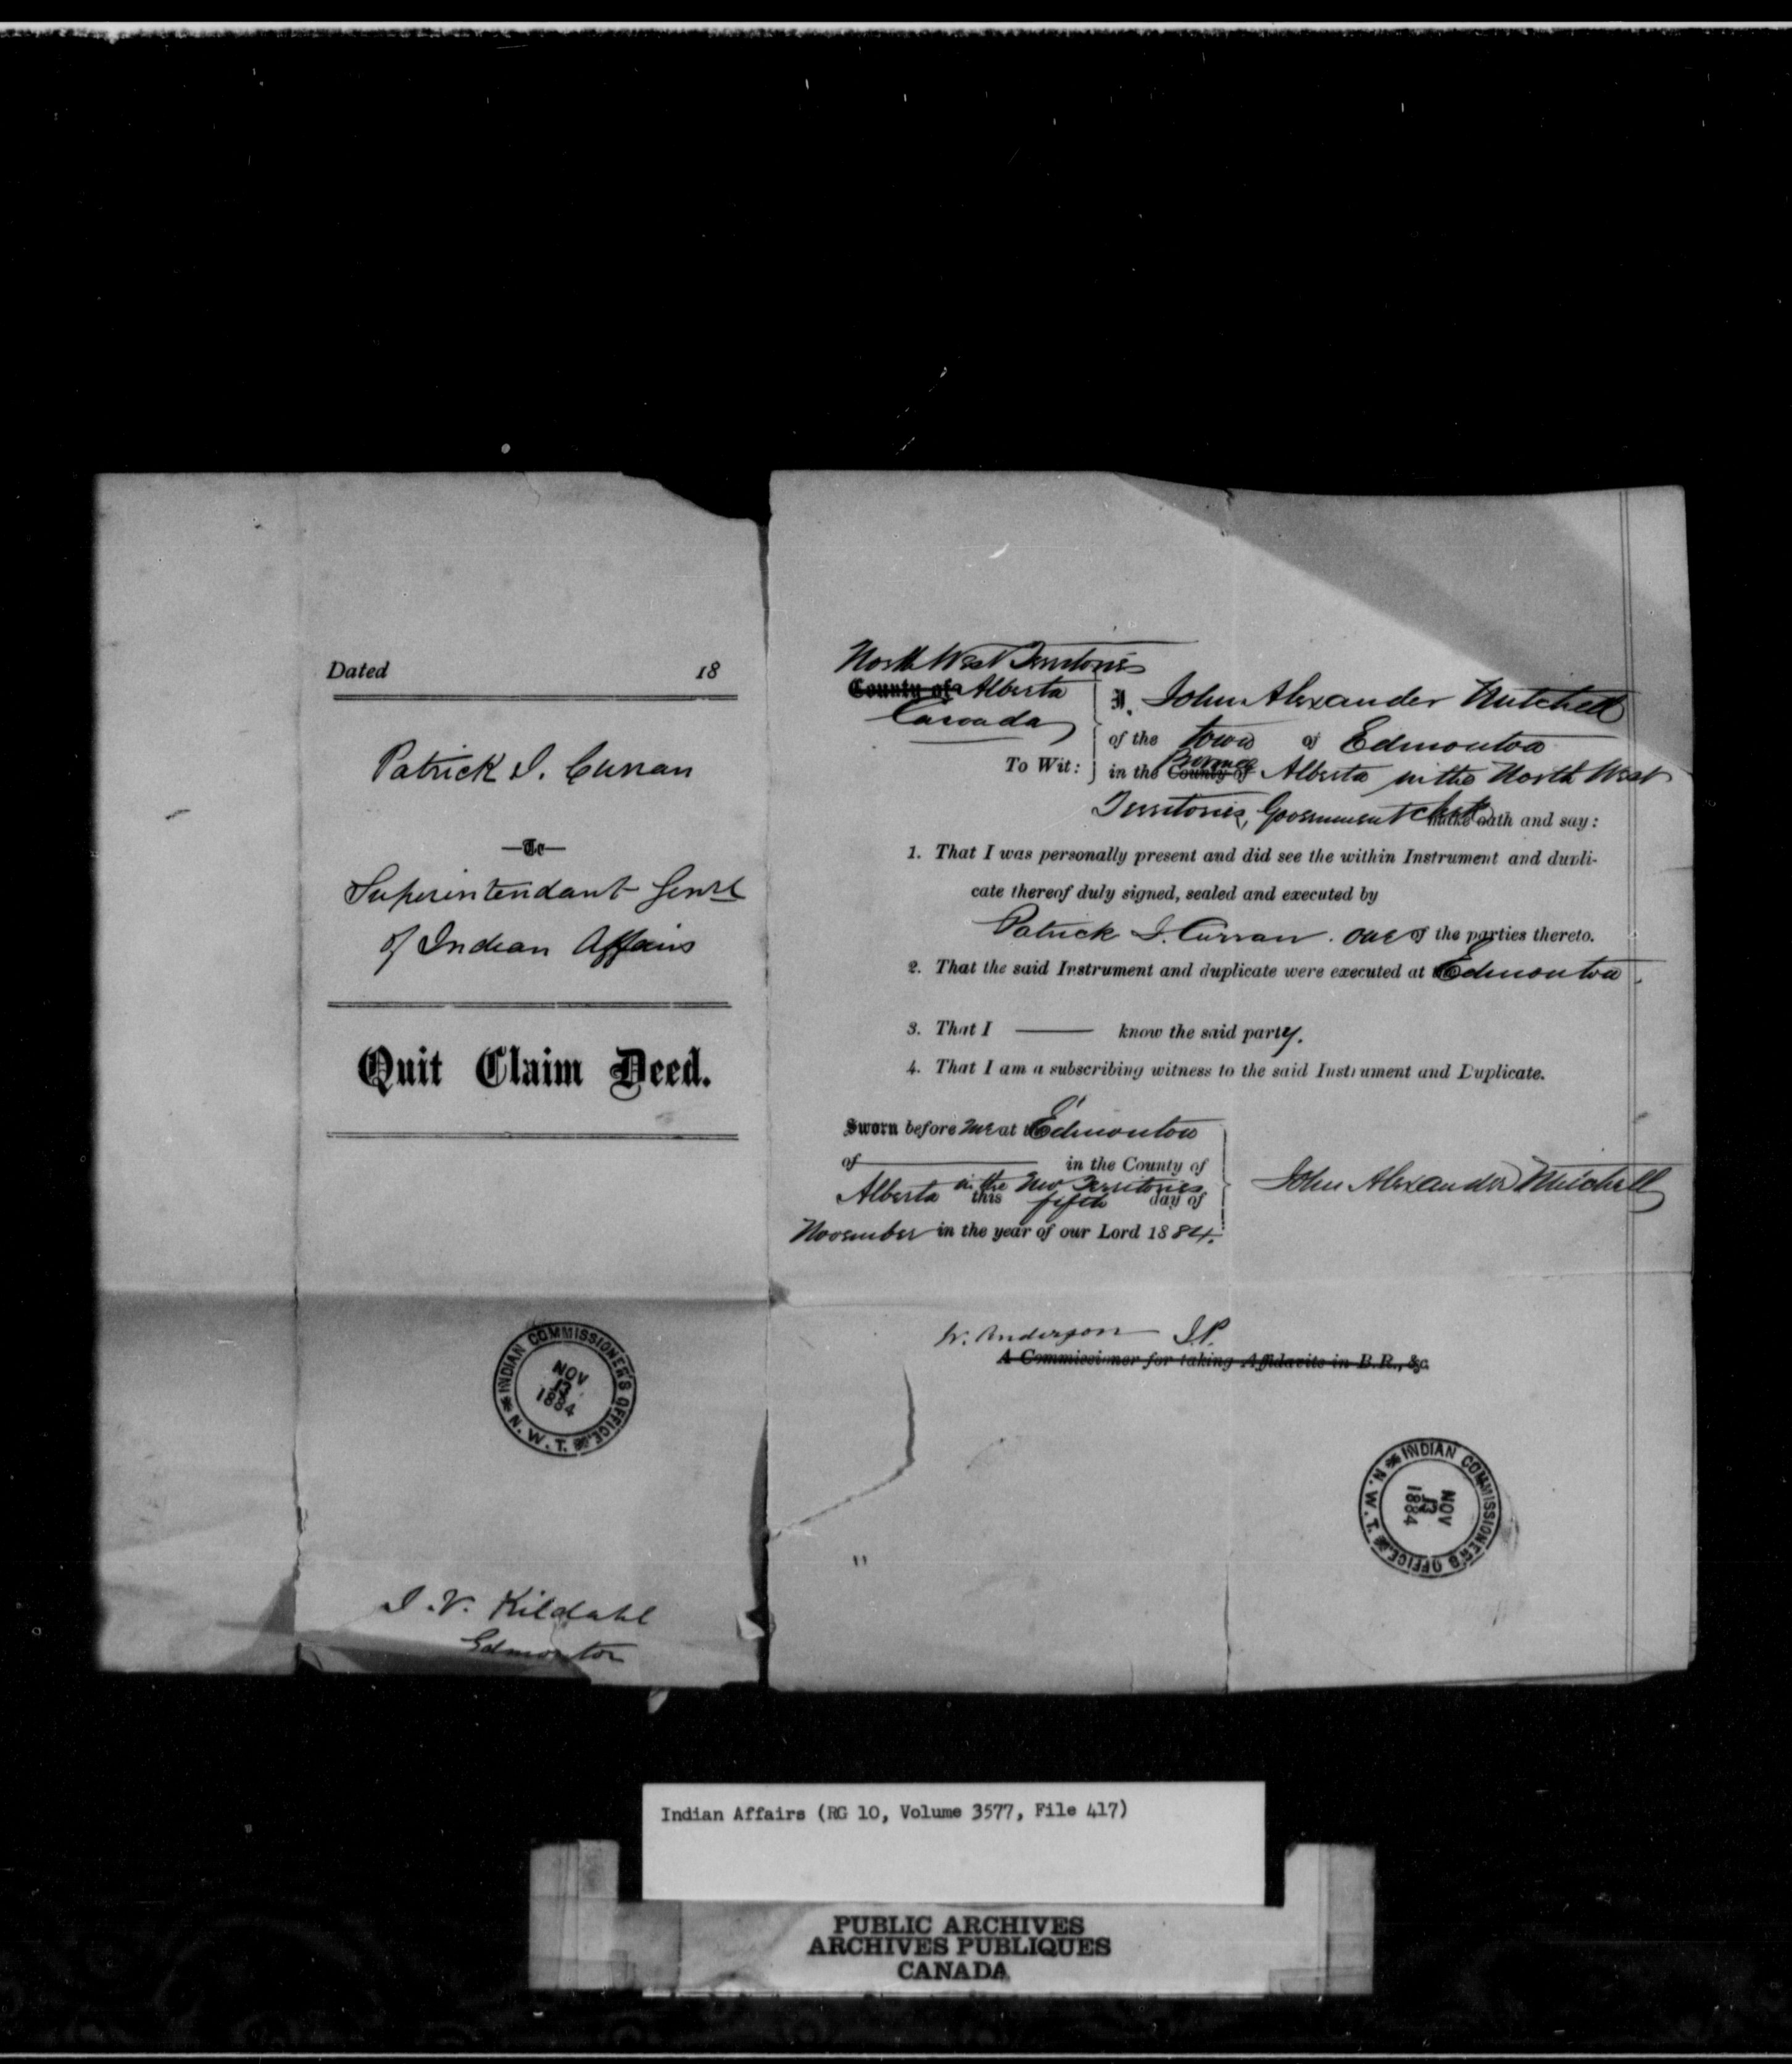 Dated 18
Patrick J. Curran
To
Superintendant Genrl
of Indian Affairs
Quit Claim Deed.
INDIAN COMMISSIONER'S OFFICE. N.W.T.
NOV
13
1884
J. V. Kildahl
Edmonton
North West Territories
County of Alberta
Canada
To Wit:
I, John Alexander Mitchell
of the Town of Edmonton
in the County of Province Alberta in the North West
Territories, Government Clerk make oath and say:
1. That I was personally present and did see the within Instrument and dupli-
cate thereof duly signed, sealed and executed by
Patrick J. Curran. one of the parties thereto.
2. That the said Instrument and duplicate were executed at Edmonton.
3. That I —— know the said party.
4. That I am a subscribing witness to the said Instrument and Duplicate.
Sworn before me at Edmonton
of in the County of
Alberta in the NW Territories
this fifth day of
November in the year of our Lord 1884.
John Alexander Mitchell
W. Anderson J.P.
A Commissioner for taking Affidavits in B.R., &c.
INDIAN COMMISSIONER'S OFFICE. N.W.T.
NOV
13
1884
Indian Affairs (RG 10, Volume 3577, File 417)
PUBLIC ARCHIVES
ARCHIVES PUBLIQUES
CANADA